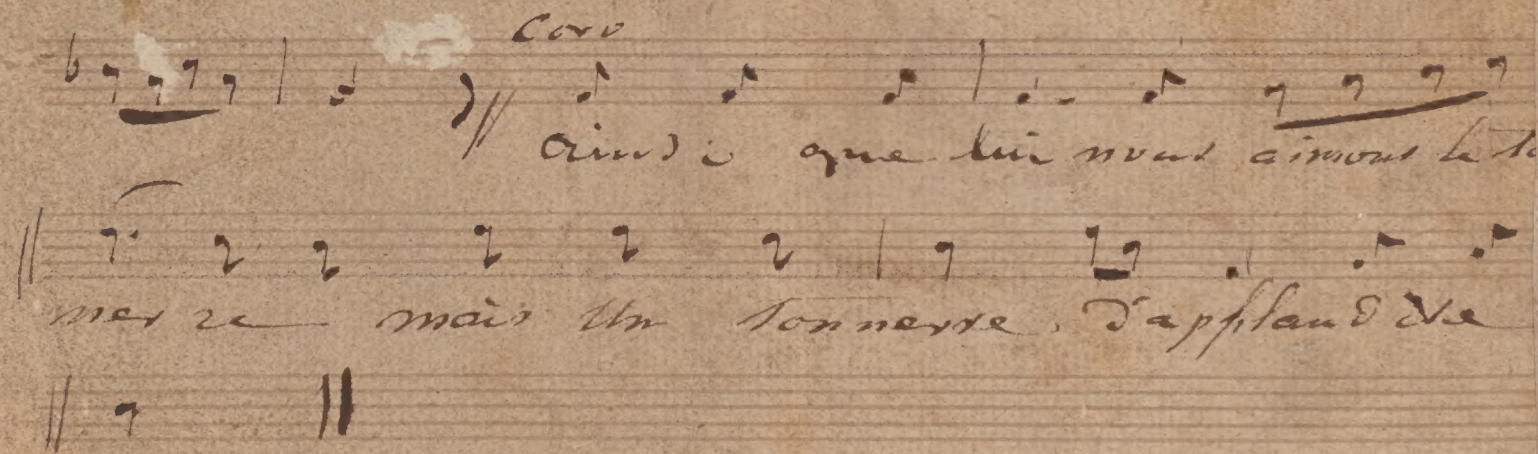 Coro
ainsi que lui nous aimons le to
nerre mais un tonnerre d'applaudisse